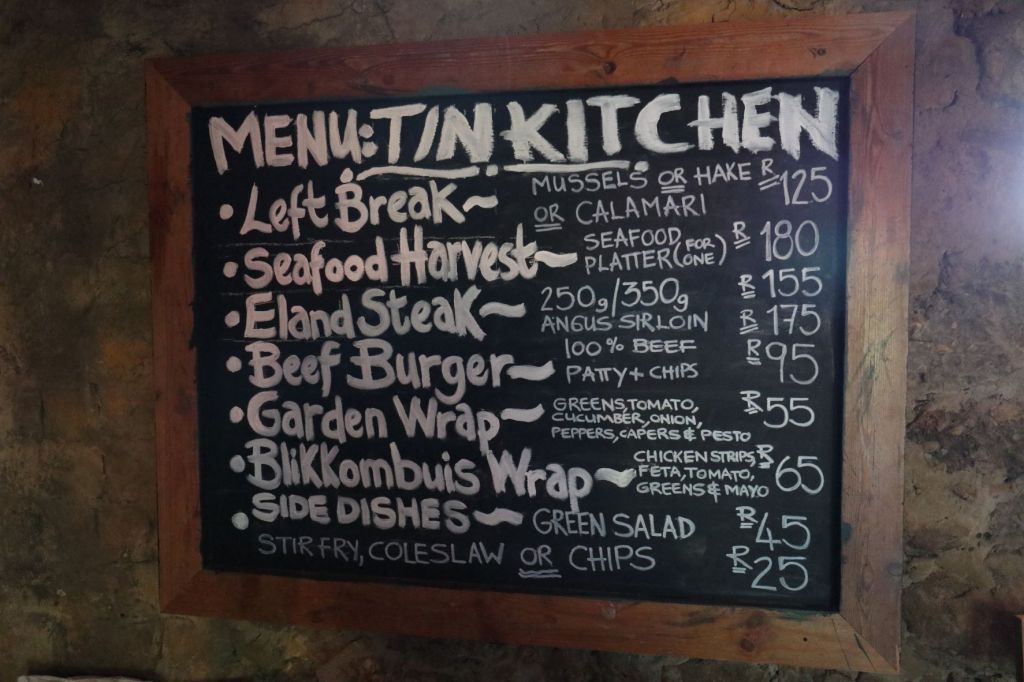 MENU: TIN KITCHEN
• Left Break ~ MUSSELS OR HAKE R 125
OR CALAMARI
• Seafood Harvest ~ SEAFOOD PLATTER (FOR ONE) R 180
• Eland Steak ~ 250g/350g R 155
ANGUS SIRLOIN R 175
• Beef Burger ~ 100% BEEF R 95
PATTY + CHIPS
• Garden Wrap ~ GREENS, TOMATO, R 55
CUCUMBER, ONION,
PEPPERS, CAPERS & PESTO
• Blikkombuis Wrap ~ CHICKEN STRIPS, R 65
FETA, TOMATO,
GREENS & MAYO
• SIDE DISHES ~ GREEN SALAD R 45
STIR FRY, COLESLAW OR CHIPS R 25